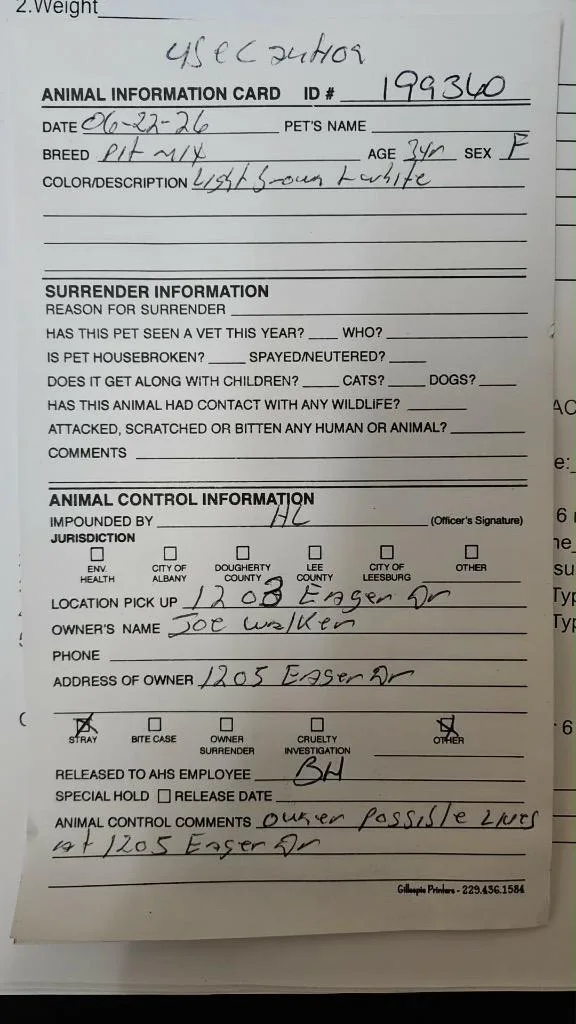 2.Weight
use caution
ANIMAL INFORMATION CARD ID # 199360
DATE 06-22-26 PET'S NAME
BREED Pit mix AGE 3yr SEX F
COLOR/DESCRIPTION Light brown & white
SURRENDER INFORMATION
REASON FOR SURRENDER
HAS THIS PET SEEN A VET THIS YEAR? WHO?
IS PET HOUSEBROKEN? SPAYED/NEUTERED?
DOES IT GET ALONG WITH CHILDREN? CATS? DOGS?
HAS THIS ANIMAL HAD CONTACT WITH ANY WILDLIFE?
ATTACKED, SCRATCHED OR BITTEN ANY HUMAN OR ANIMAL?
COMMENTS
ANIMAL CONTROL INFORMATION
IMPOUNDED BY HL (Officer's Signature)
JURISDICTION
ENV. HEALTH CITY OF ALBANY DOUGHERTY COUNTY LEE COUNTY CITY OF LEESBURG OTHER
LOCATION PICK UP 1203 Eager Dr
OWNER'S NAME Joe Walker
PHONE
ADDRESS OF OWNER 1205 Eager Dr
STRAY BITE CASE OWNER SURRENDER CRUELTY INVESTIGATION OTHER
RELEASED TO AHS EMPLOYEE BH
SPECIAL HOLD RELEASE DATE
ANIMAL CONTROL COMMENTS owner possible Lives
at 1205 Eager Dr
Gillespie Printers - 229.436.1584